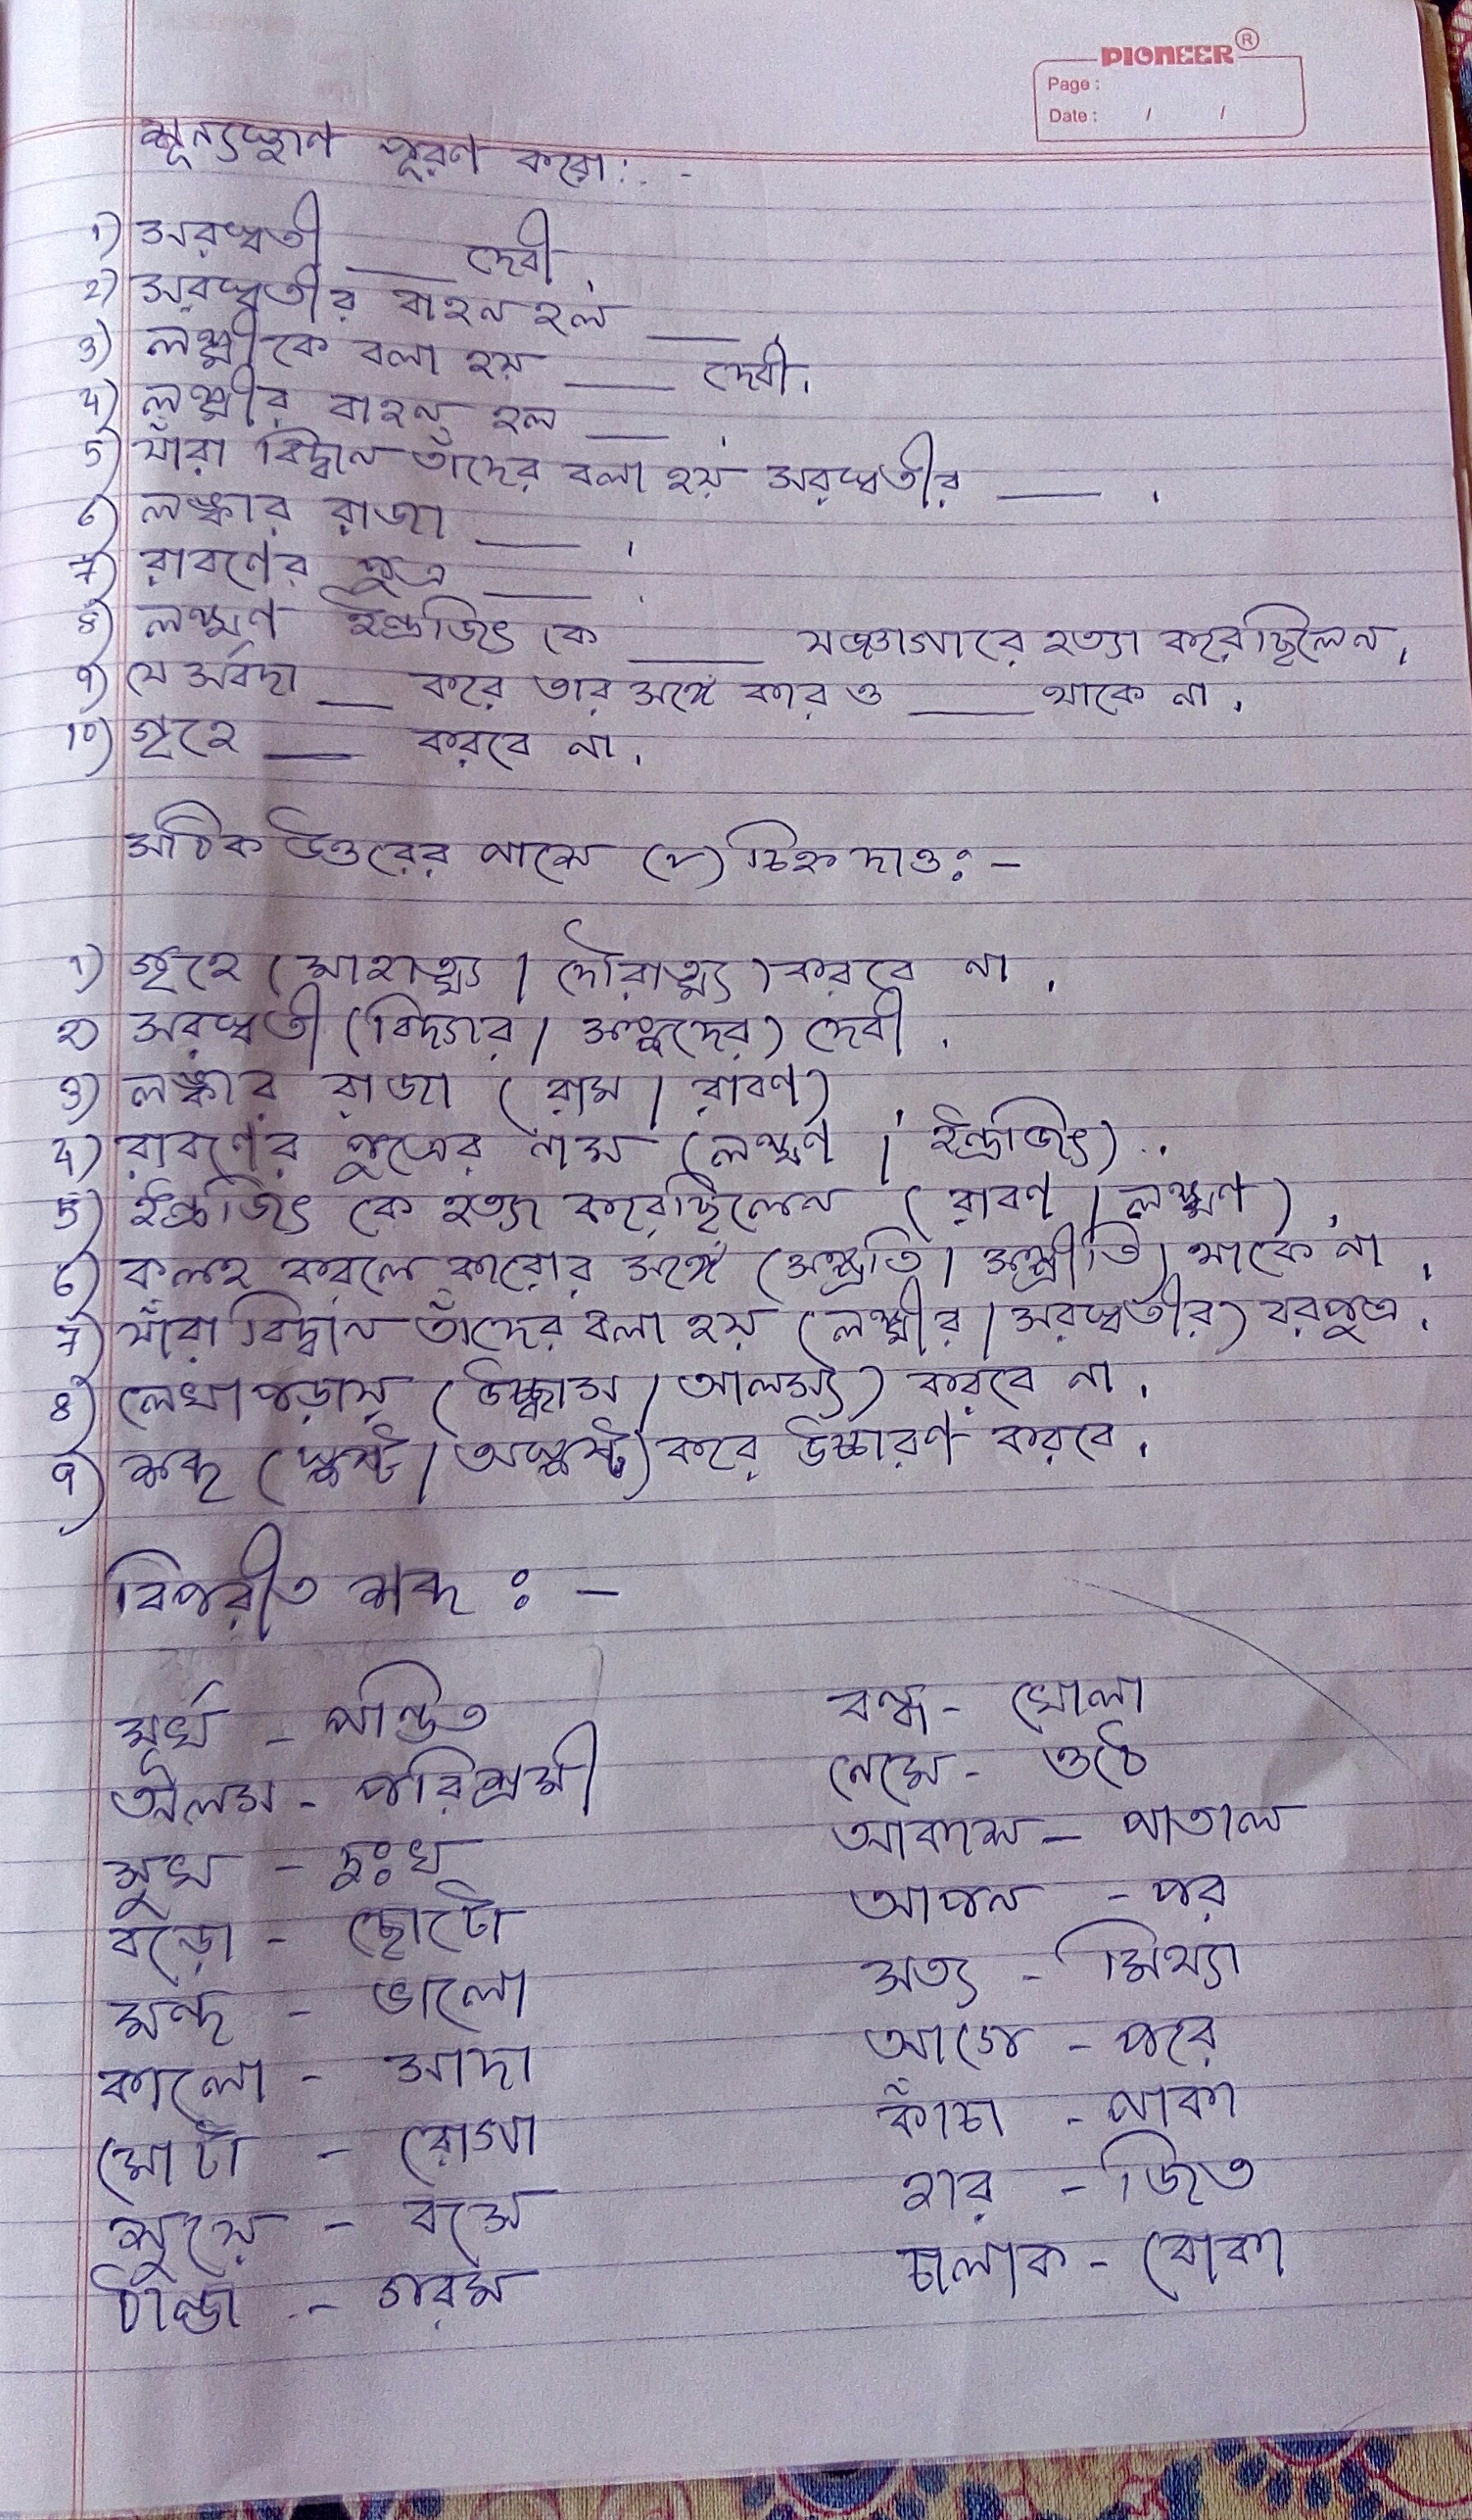 PIONEER®
Page :
Date : / /
শূন্যস্থান পূরণ করো : -
1) সরস্বতী ___ দেবী.
2) সরস্বতীর বাহন হল ___ .
3) লক্ষ্মীকে বলা হয় ___ দেবী.
4) লক্ষ্মীর বাহন হল ___ .
5) যাঁরা বিদ্বান তাঁদের বলা হয় সরস্বতীর ___ .
6) লঙ্কার রাজা ___ .
7) রাবণের পুত্র ___ .
8) লক্ষ্মণ ইন্দ্রজিৎ কে ___ যজ্ঞাগারে হত্যা করেছিলেন.
9) যে সর্বদা ___ করে তার সঙ্গে কারও ___ থাকে না.
10) গৃহে ___ করবে না.
সঠিক উত্তরের পাশে (✓) চিহ্ন দাও : -
1) গৃহে (মাহাত্ম্য / দৌরাত্ম্য) করবে না.
2) সরস্বতী (বিদ্যার / অন্ধদের) দেবী.
3) লঙ্কার রাজা (রাম / রাবণ).
4) রাবণের পুত্রের নাম (লক্ষ্মণ / ইন্দ্রজিৎ).
5) ইন্দ্রজিৎ কে হত্যা করেছিলেন (রাবণ / লক্ষ্মণ).
6) কলহ করলে কারোর সঙ্গে (সম্প্রতি / সম্প্রীতি) থাকে না.
7) যাঁরা বিদ্বান তাঁদের বলা হয় (লক্ষ্মীর / সরস্বতীর) বরপুত্র.
8) লেখাপড়ায় (উচ্ছ্বাস / আলস্য) করবে না.
9) শব্দ (স্পষ্ট / অস্পষ্ট) করে উচ্চারণ করবে.
বিপরীত শব্দ : -
মূর্খ - পন্ডিত
অলস - পরিশ্রমী
সুখ - দুঃখ
বড়ো - ছোটো
মন্দ - ভালো
কালো - সাদা
মোটা - রোগা
শুয়ে - বসে
ঠান্ডা - গরম
বন্ধ - খোলা
নেমে - ওঠে
আকাশ - পাতাল
আপন - পর
সত্য - মিথ্যা
আগে - পরে
কাঁচা - পাকা
হার - জিত
চালাক - বোকা